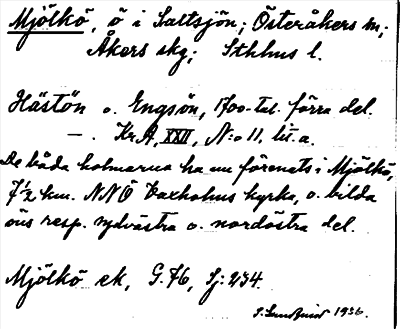 Mjölkö, ö i Saltsjön; Österåkers sn;
Åkers skg; Sthlms l.
Hästön o. Engsön, 1700-tal. förra del.
— . Kr.A, XXII, N:o 11, lit. a.
De båda holmarna ha nu förenats i Mjölkö,
7½ km. NNÖ Vaxholms kyrka, o. bilda
öns resp. sydvästra o. nordöstra del.
Mjölkö ek, G.76, Sj: 234.
1936.